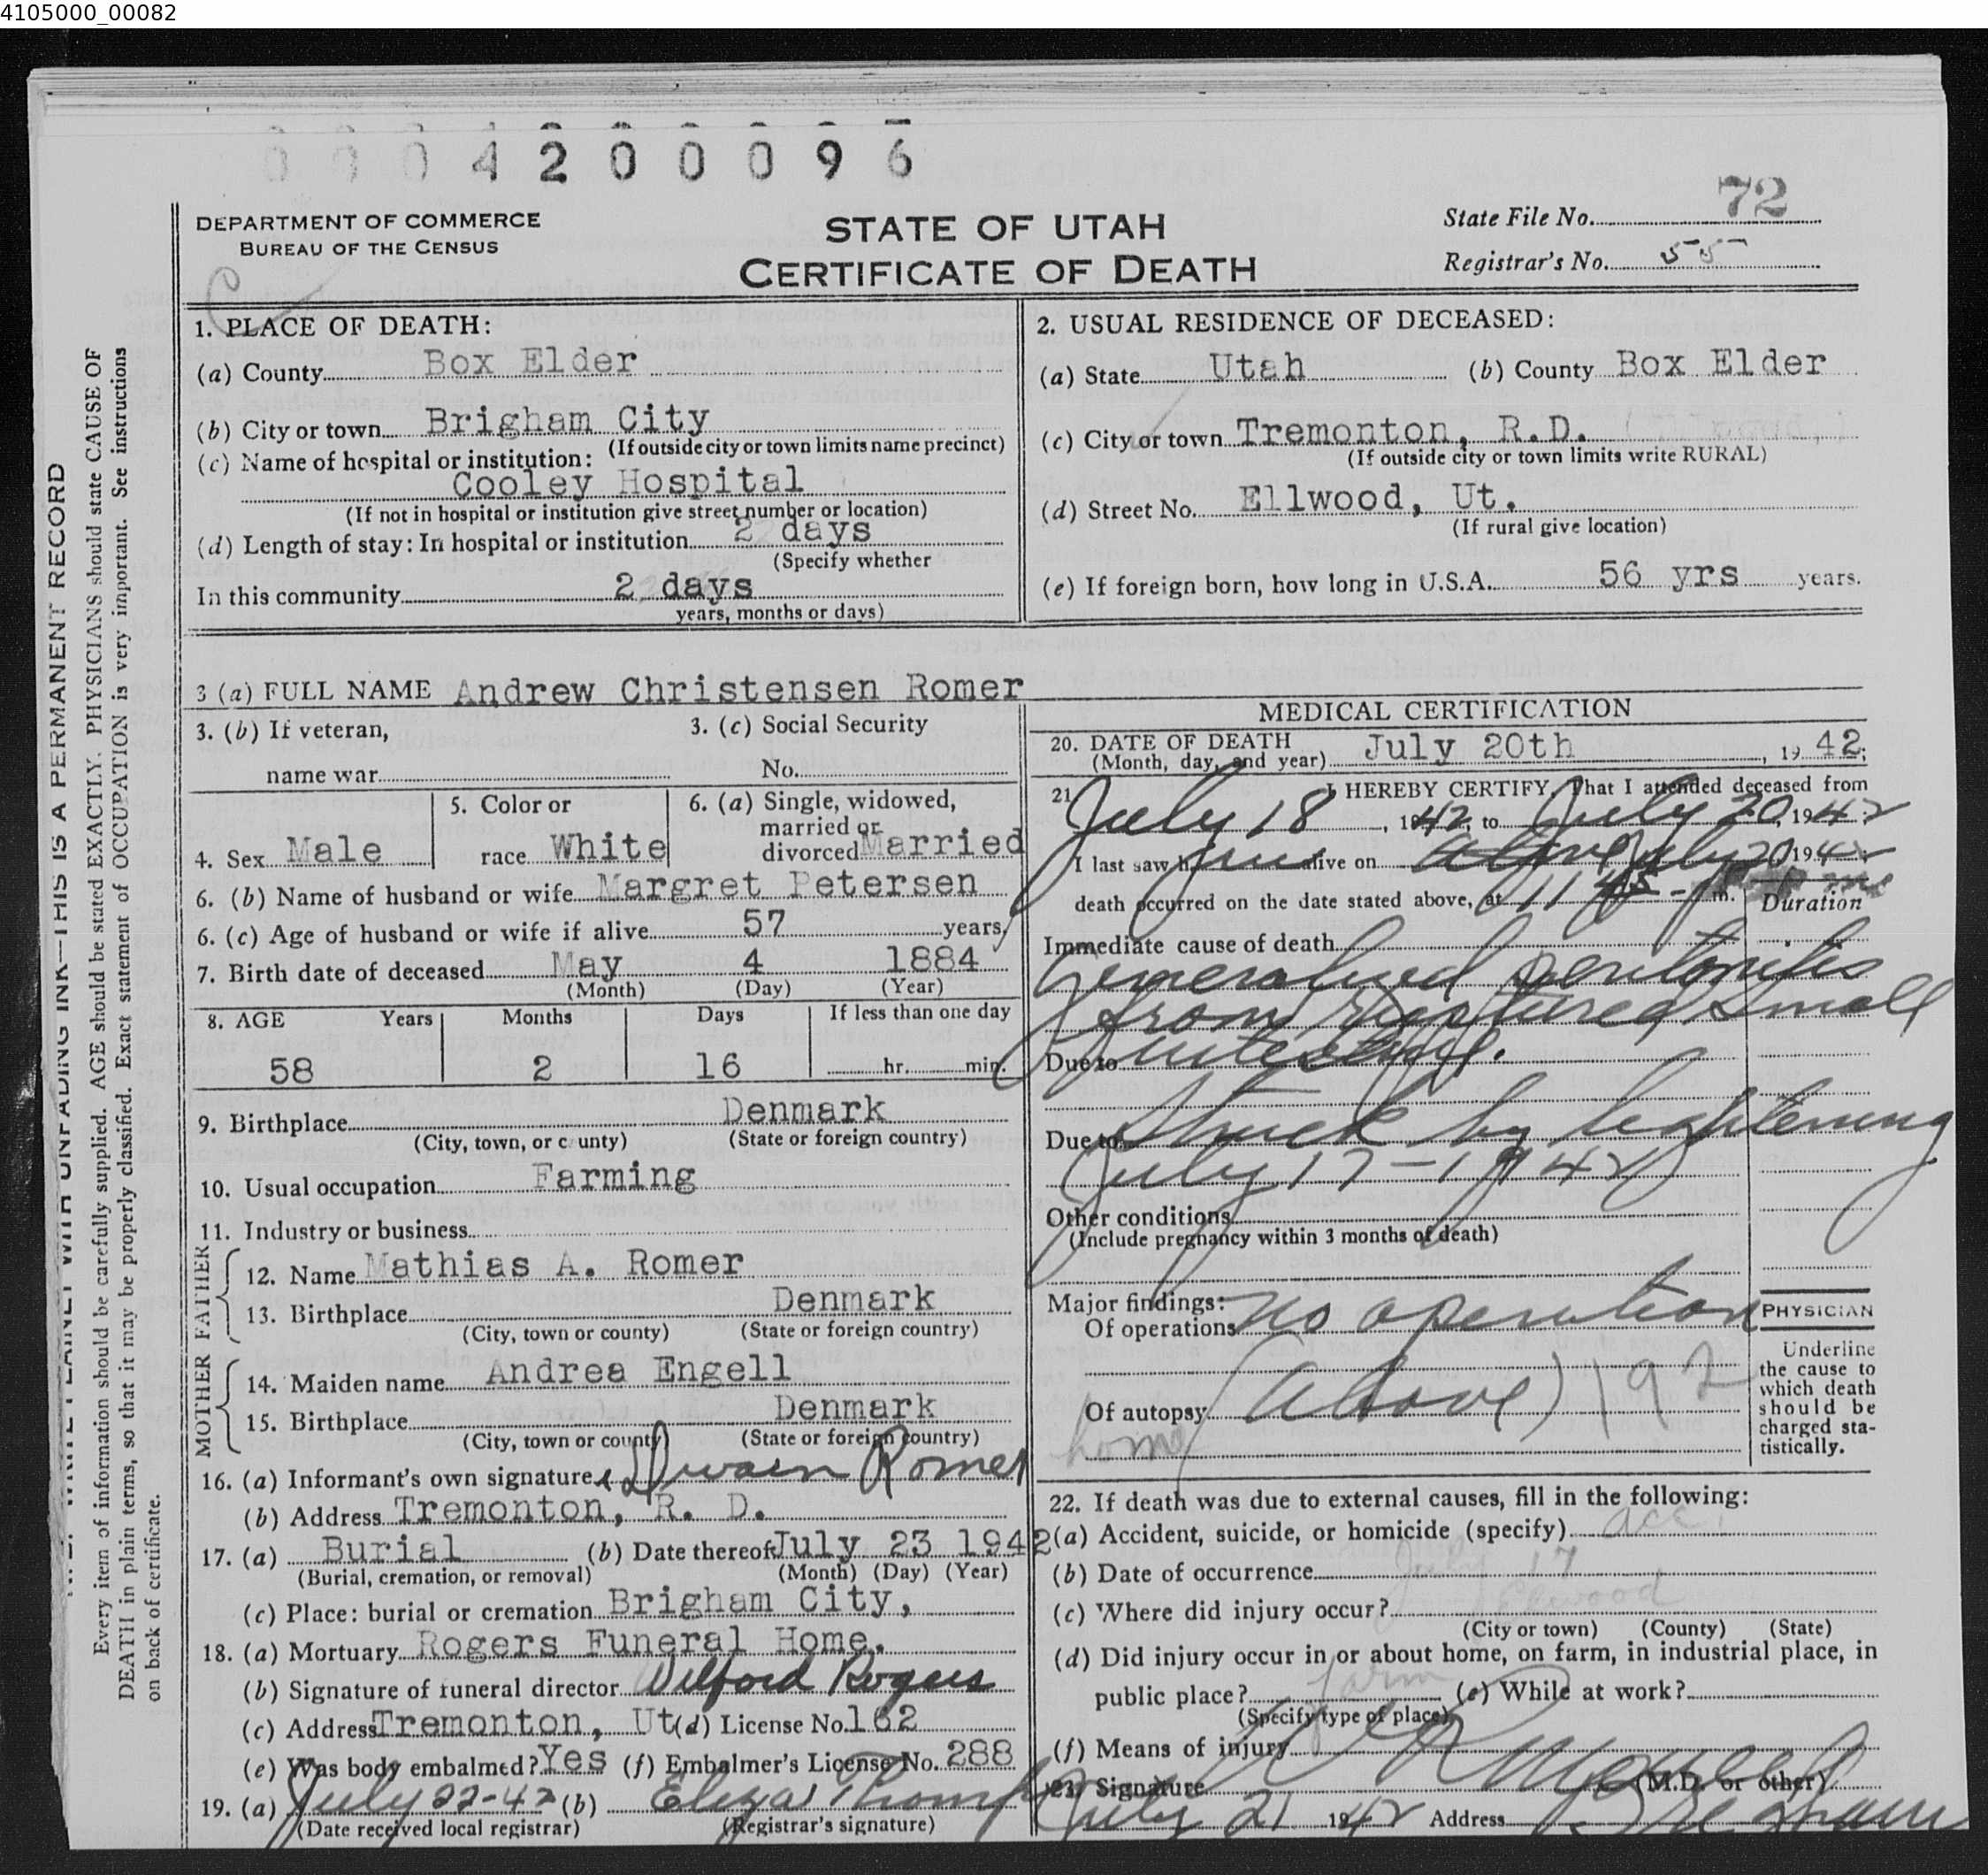 4105000_00082
0 0 0 4 2 0 0 0 9 6
DEPARTMENT OF COMMERCE
BUREAU OF THE CENSUS
STATE OF UTAH
CERTIFICATE OF DEATH
State File No. 72
Registrar's No. 55
1. PLACE OF DEATH:
(a) County Box Elder
(b) City or town Brigham City
(If outside city or town limits name precinct)
(c) Name of hospital or institution:
Cooley Hospital
(If not in hospital or institution give street number or location)
(d) Length of stay: In hospital or institution 2 days
(Specify whether
In this community 2 days
years, months or days)
2. USUAL RESIDENCE OF DECEASED:
(a) State Utah (b) County Box Elder
(c) City or town Tremonton, R.D.
(If outside city or town limits write RURAL)
(d) Street No. Ellwood, Ut.
(If rural give location)
(e) If foreign born, how long in U.S.A. 56 yrs years.
3 (a) FULL NAME Andrew Christensen Romer
3. (b) If veteran,
name war
3. (c) Social Security
No.
4. Sex Male
5. Color or
race White
6. (a) Single, widowed,
married or
divorced Married
6. (b) Name of husband or wife Margret Petersen
6. (c) Age of husband or wife if alive 57 years
7. Birth date of deceased May 4 1884
(Month) (Day) (Year)
8. AGE Years Months Days If less than one day
58 2 16 hr. min.
9. Birthplace Denmark
(City, town, or county) (State or foreign country)
10. Usual occupation Farming
11. Industry or business
FATHER
12. Name Mathias A. Romer
13. Birthplace Denmark
(City, town or county) (State or foreign country)
MOTHER
14. Maiden name Andrea Engell
15. Birthplace Denmark
(City, town or county) (State or foreign country)
16. (a) Informant's own signature Dwaen Romer
(b) Address Tremonton, R. D.
17. (a) Burial (b) Date thereof July 23 1942
(Burial, cremation, or removal) (Month) (Day) (Year)
(c) Place: burial or cremation Brigham City,
18. (a) Mortuary Rogers Funeral Home.
(b) Signature of funeral director Wilford Rogers
(c) Address Tremonton, Ut (d) License No. 162
(e) Was body embalmed? Yes (f) Embalmer's License No. 288
19. (a) July 22-42 (b) Eliza Thomp
(Date received local registrar) (Registrar's signature)
MEDICAL CERTIFICATION
20. DATE OF DEATH
(Month, day, and year) July 20th, 1942;
21. I HEREBY CERTIFY, That I attended deceased from
July 18, 1942, to July 20, 1942
I last saw him alive on above July 20 1942
death occurred on the date stated above, at 11 45 - m.
Duration
Immediate cause of death
Generalized peritonitis
from ruptured small
Due to intestine.
Due to Struck by lightening
July 17-1942
Other conditions
(Include pregnancy within 3 months of death)
Major findings:
Of operations no operation
Of autopsy (above) 192
home
PHYSICIAN
Underline
the cause to
which death
should be
charged sta-
tistically.
22. If death was due to external causes, fill in the following:
(a) Accident, suicide, or homicide (specify) acc.
(b) Date of occurrence July 17
(c) Where did injury occur? Elwood
(City or town) (County) (State)
(d) Did injury occur in or about home, on farm, in industrial place, in
public place? farm (e) While at work?
(Specify type of place)
(f) Means of injury
23. Signature (M.D. or other)
July 21 1942 Address Brigham
Every item of information should be carefully supplied. AGE should be stated EXACTLY. PHYSICIANS should state CAUSE OF
DEATH in plain terms, so that it may be properly classified. Exact statement of OCCUPATION is very important. See instructions
on back of certificate.
WRITE PLAINLY WITH UNFADING INK—THIS IS A PERMANENT RECORD